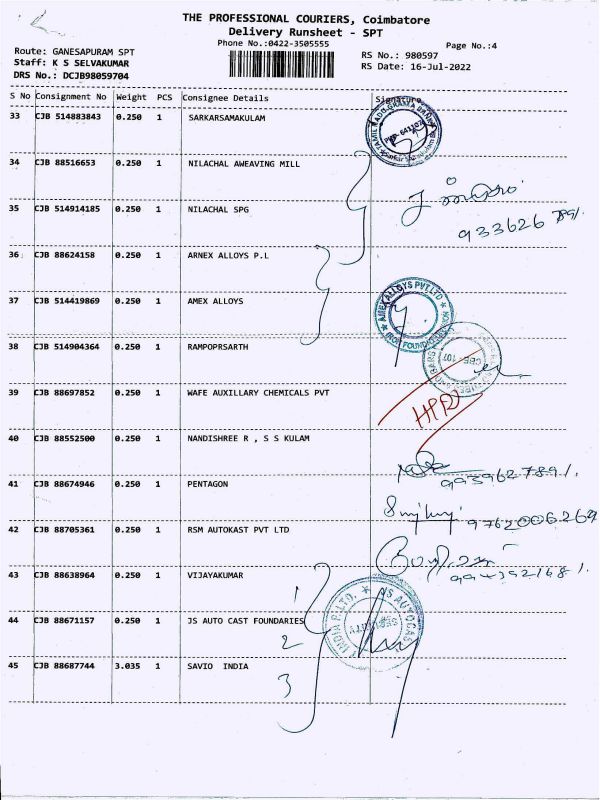 THE PROFESSIONAL COURIERS, Coimbatore
Delivery Runsheet - SPT
Phone No.:0422-3505555
Page No.:4
Route: GANESAPURAM SPT
Staff: K S SELVAKUMAR
DRS No.: DCJB98059704
RS No.: 980597
RS Date: 16-Jul-2022
S No Consignment No Weight PCS Consignee Details Signature
33 CJB 514883843 0.250 1 SARKARSAMAKULAM
34 CJB 88516653 0.250 1 NILACHAL AWEAVING MILL
35 CJB 514914185 0.250 1 NILACHAL SPG
36 CJB 88624158 0.250 1 ARNEX ALLOYS P.L
37 CJB 514419869 0.250 1 AMEX ALLOYS
AMEX ALLOYS PVT LTD
38 CJB 514904364 0.250 1 RAMPOPRSARTH
39 CJB 88697852 0.250 1 WAFE AUXILLARY CHEMICALS PVT
40 CJB 88552500 0.250 1 NANDISHREE R , S S KULAM
41 CJB 88674946 0.250 1 PENTAGON
9762006269
42 CJB 88705361 0.250 1 RSM AUTOKAST PVT LTD
43 CJB 88638964 0.250 1 VIJAYAKUMAR
1
44 CJB 88671157 0.250 1 JS AUTO CAST FOUNDARIES
2
45 CJB 88687744 3.035 1 SAVIO INDIA
3